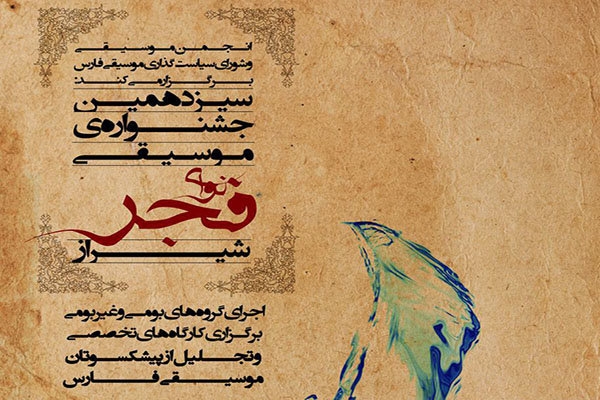 انجمن موسیقی
و شورای سیاست گذاری موسیقی فارس
برگزار می کند:
سیزدهمین
جشنواره‌ی
موسیقی
نوای
فجر
شیراز
اجرای گروه‌های بومی و غیربومی
برگزاری کارگاه‌های تخصصی
و تجلیل از پیشکسوتان
موسیقی فارس